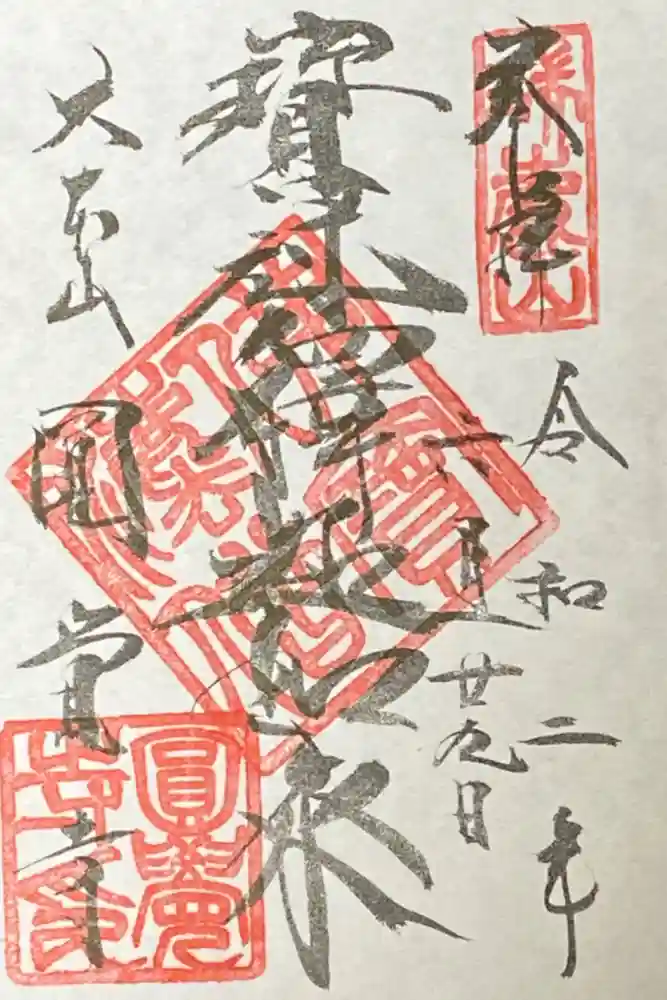 奉拝
令和二年
六月廿九日
寶冠釋迦如来
大本山
圓覚寺